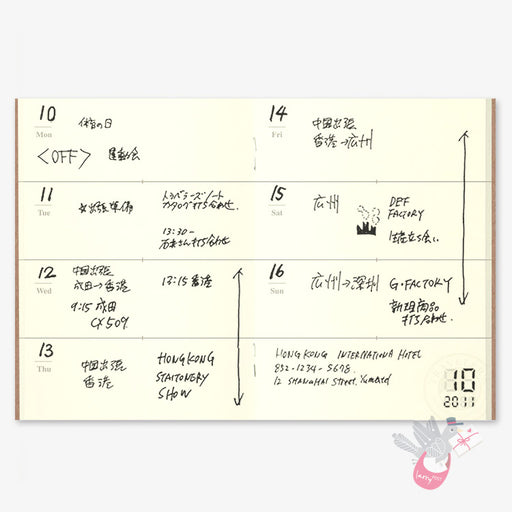 10
Mon
体育の日
<OFF> 運動会
11
Tue
☆出張準備
トラベラーズノート
カタログ打ち合わせ.
13:30-
打ち合わせ
12
Wed
中国出張
成田→香港
9:15 成田
CX509
13:15 香港
13
Thu
中国出張
香港
HONGKONG
STAITONERY
SHOW
14
Fri
中国出張
香港→広州
15
Sat
広州
DEF
FACTORY
生産立ち会い.
16
Sun
広州→深圳
G・FACTORY
新規商品
打ち合わせ.
HONG KONG INTERNATIONA HOTEL
852-1234-5678.
12 SHANGHAI STREET.
10
2011
larry